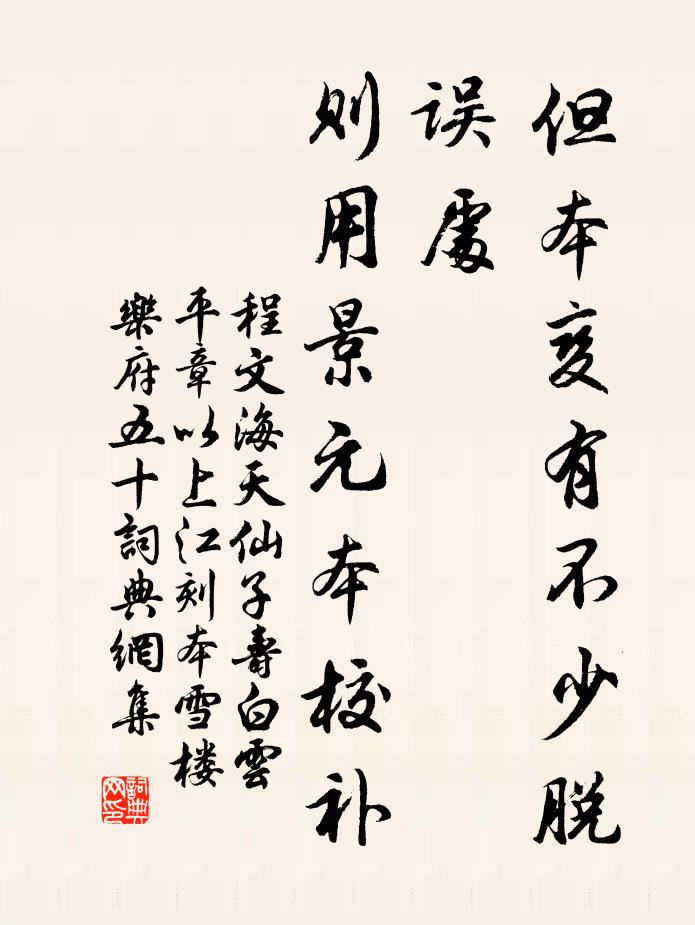 但本变有不少脱
误處
则用景元本校补
程文海天仙子壽白雲
平章以上江刻本雪楼
樂府五十詞典網集
詞典
网印